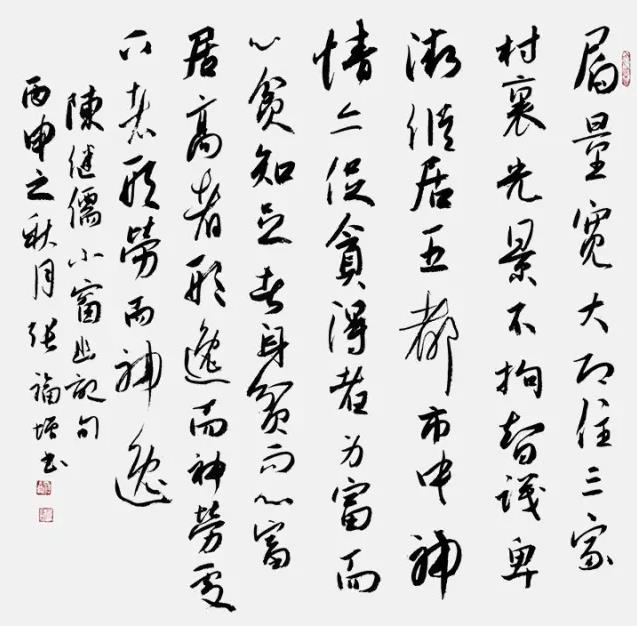 局量寬大即住三家
村裏光景不拘智識卑
微縱居五都市中神
情亦促貪得者身富而
心貧知足者身貧而心富
居高者形逸而神勞處
下者形勞而神逸
陳繼儒小窗幽記句
丙申之秋月張福增書